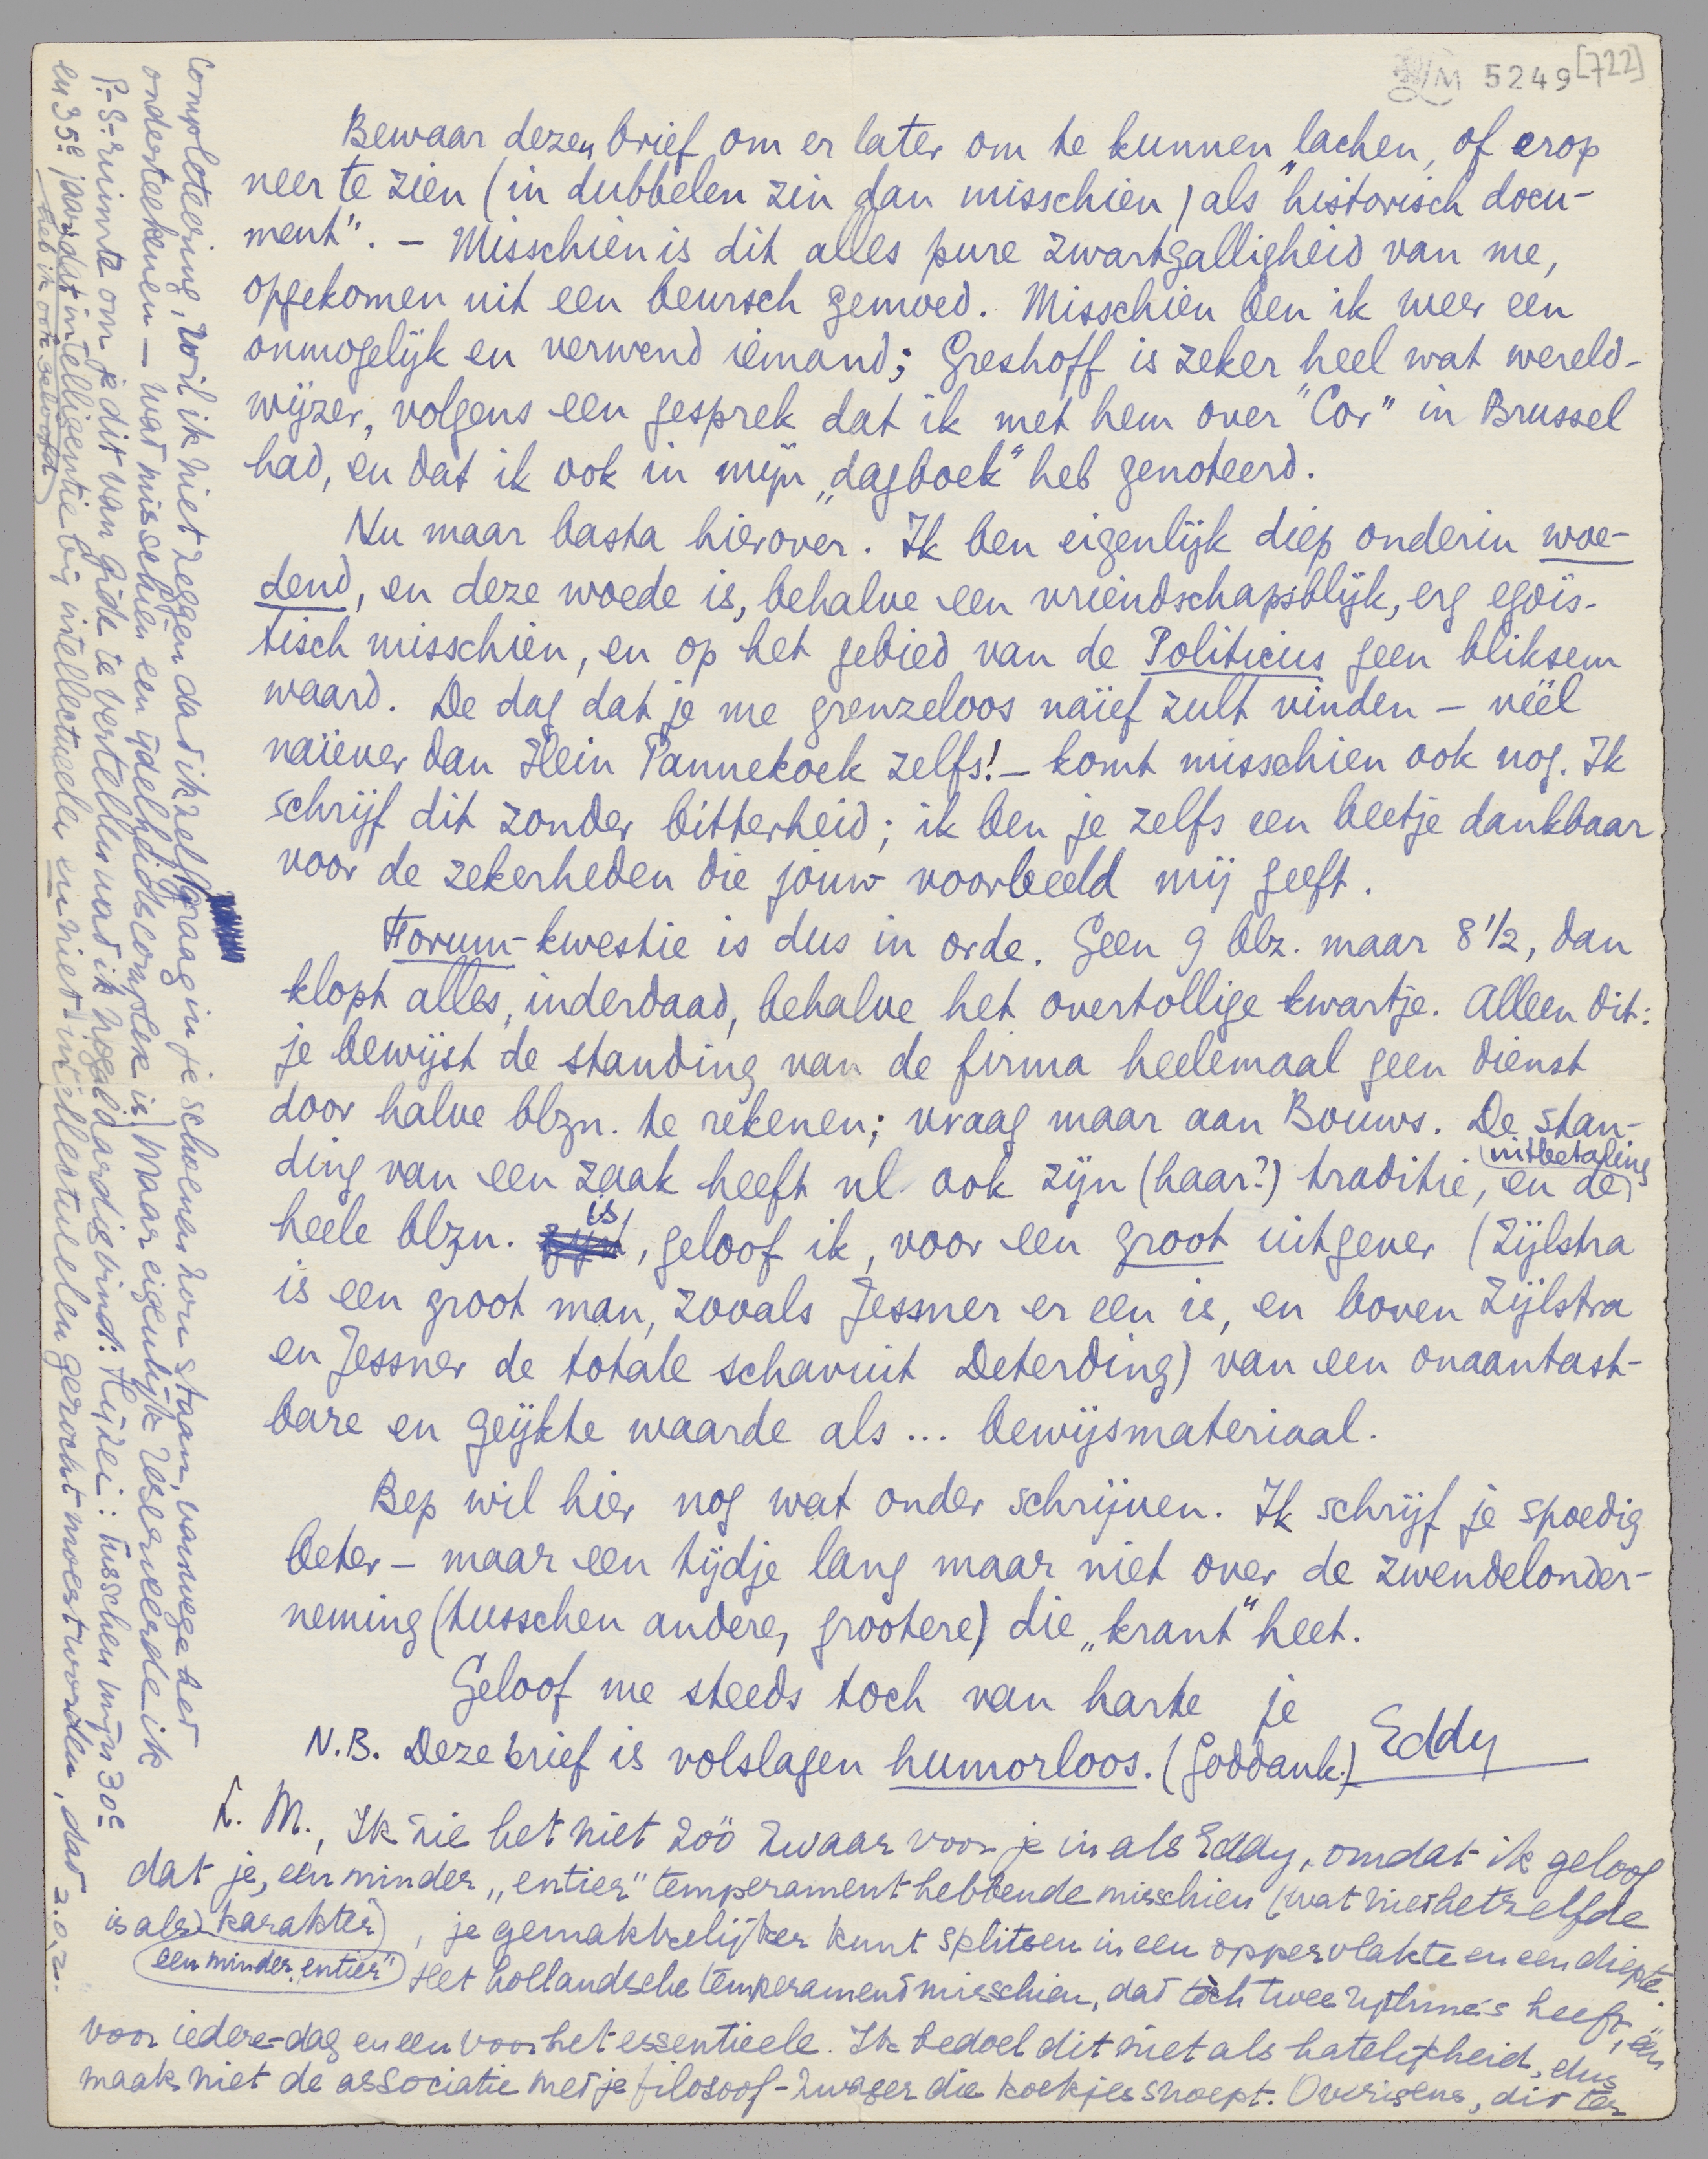 LM 5249 [722]
Bewaar dezen brief om er later om te kunnen lachen, of erop
neer te zien (in dubbelen zin dan misschien) als "historisch docu-
ment". – Misschien is dit alles pure zwartgalligheid van me,
opgekomen uit een beursch gemoed. Misschien ben ik weer een
onmogelijk en verwend iemand; Greshoff is zeker heel wat wereld-
wijzer, volgens een gesprek dat ik met hem over "Cor" in Brussel
had, en dat ik ook in mijn „dagboek" heb genoteerd.
Nu maar basta hierover. Ik ben eigenlijk diep onderin woe-
dend, en deze woede is, behalve een vriendschapsblijk, erg egoïs-
tisch misschien, en op het gebied van de Politicus geen bliksem
waard. De dag dat je me grenzeloos naïef zult vinden – véél
naïever dan Hein Pannekoek zelfs! – komt misschien ook nog. Ik
schrijf dit zonder bitterheid; ik ben je zelfs een beetje dankbaar
voor de zekerheden die jouw voorbeeld mij geeft.
Forum-kwestie is dus in orde. Geen 9 blz. maar 8 1/2, dan
klopt alles, inderdaad, behalve het overtollige kwartje. Alleen dit:
je bewijst de standing van de firma heelemaal geen dienst
door halve blzn. te rekenen; vraag maar aan Bouws. De stan-
ding van een zaak heeft nl. ook zijn (haar?) traditie, en de uitbetaling
heele blzn. is, geloof ik, voor een groot uitgever (Zijlstra
is een groot man, zooals Jessner er een is, en boven Zijlstra
en Jessner de totale schavuit Deterding) van een onaantast-
bare en geijkte waarde als ... bewijsmateriaal.
Bep wil hier nog wat onder schrijven. Ik schrijf je spoedig
beter – maar een tijdje lang maar niet over de zwendelonder-
neming (tusschen andere, grootere) die „krant" heet.
Geloof me steeds toch van harte je
Eddy
N.B. Deze brief is volslagen humorloos. (Goddank.)
L. M., Ik zie het niet zóó zwaar voor je in als Eddy, omdat ik geloof
dat je, een minder „entier" temperament hebbende misschien (wat niet hetzelfde
is als een minder „entier" karakter), je gemakkelijker kunt splitsen in een oppervlakte en een diepte.
Het hollandsche temperament misschien, dat tòch twee rythme's heeft, één
voor iedere-dag en een voor het essentieele. Ik bedoel dit niet als hatelijkheid, dus
maak niet de associatie met je filosoof-zwager die koekjes snoept. Overigens, dit ter
completeering, wil ik niet zeggen dat ik zelf graag in je schoenen zou staan, vanwege het
onderteekenen – wat misschien een ijdelheidscomplex is. Maar eigenlijk reserveerde ik
P.-S.-ruimte om je dit van Gide te vertellen wat ik nogal aardig vind: Hij zei: tusschen mijn 30e
en 35e jaar heb ik ook geloofd dat intelligentie bij intellectueelen en niet-intellectueelen gezocht moest worden, dat z.o.z.